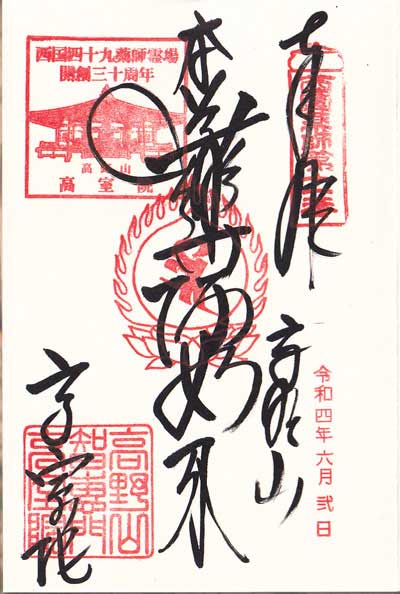 奉拝
高野山
令和四年六月弐日
本尊薬師如来
西国四十九薬師霊場
開創三十周年
高野山
高室院
高室院
高野山
高室院